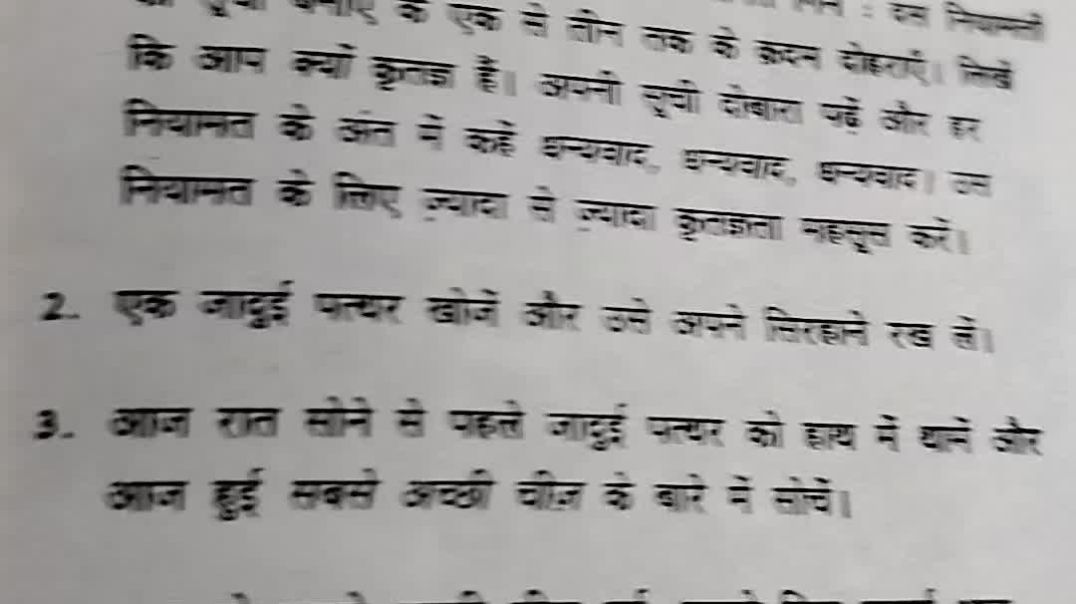 के एक से तीन तक के क़दम दोहराएँ। लिखें
कि आप क्यों कृतज्ञ हैं। अपनी सूची दोबारा पढ़ें और हर
नियामत के अंत में कहें धन्यवाद, धन्यवाद, धन्यवाद। उस
नियामत के लिए ज़्यादा से ज़्यादा कृतज्ञता महसूस करें।
2. एक जादुई पत्थर खोजें और उसे अपने सिरहाने रख लें।
3. आज रात सोने से पहले जादुई पत्थर को हाथ में थामें और
आज हुई सबसे अच्छी चीज़ के बारे में सोचें।